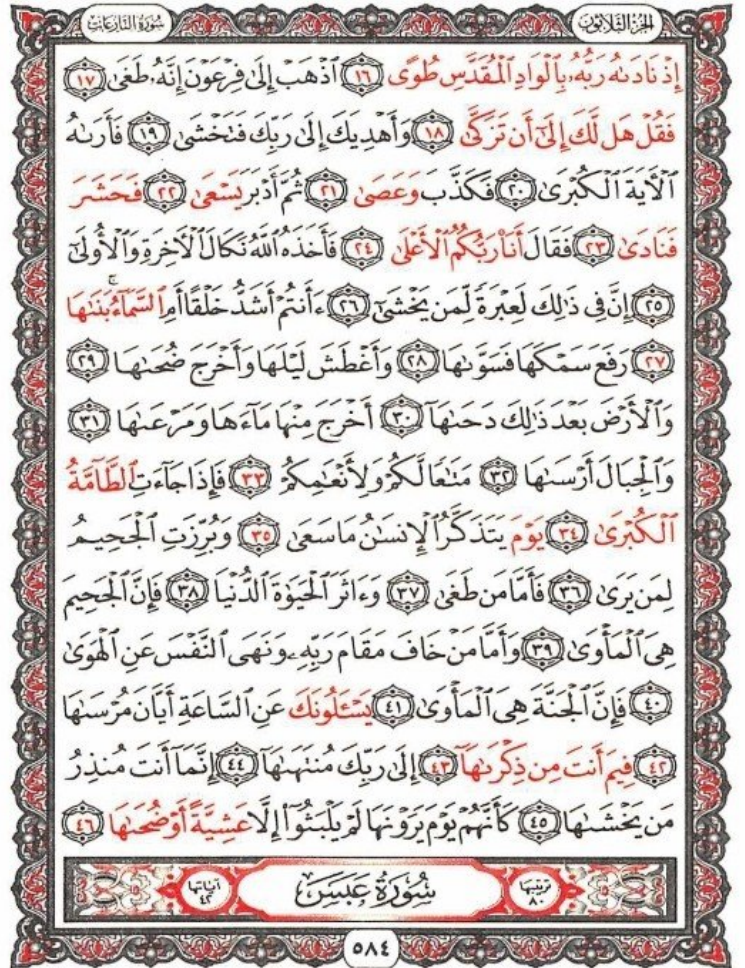 الجزء الثلاثون سورة النازعات
إِذْ نَادَىٰهُ رَبُّهُۥ بِٱلْوَادِ ٱلْمُقَدَّسِ طُوًى ١٦ ٱذْهَبْ إِلَىٰ فِرْعَوْنَ إِنَّهُۥ طَغَىٰ ١٧
فَقُلْ هَل لَّكَ إِلَىٰٓ أَن تَزَكَّىٰ ١٨ وَأَهْدِيَكَ إِلَىٰ رَبِّكَ فَتَخْشَىٰ ١٩ فَأَرَىٰهُ
ٱلْأَيَةَ ٱلْكُبْرَىٰ ٢٠ فَكَذَّبَ وَعَصَىٰ ٢١ ثُمَّ أَدْبَرَ يَسْعَىٰ ٢٢ فَحَشَرَ
فَنَادَىٰ ٢٣ فَقَالَ أَنَا۠ رَبُّكُمُ ٱلْأَعْلَىٰ ٢٤ فَأَخَذَهُ ٱللَّهُ نَكَالَ ٱلْأَخِرَةِ وَٱلْأُولَىٰٓ
٢٥ إِنَّ فِى ذَٰلِكَ لَعِبْرَةً لِّمَن يَخْشَىٰٓ ٢٦ ءَأَنتُمْ أَشَدُّ خَلْقًا أَمِ ٱلسَّمَآءُ ۚ بَنَىٰهَا
٢٧ رَفَعَ سَمْكَهَا فَسَوَّىٰهَا ٢٨ وَأَغْطَشَ لَيْلَهَا وَأَخْرَجَ ضُحَىٰهَا ٢٩
وَٱلْأَرْضَ بَعْدَ ذَٰلِكَ دَحَىٰهَآ ٣٠ أَخْرَجَ مِنْهَا مَآءَهَا وَمَرْعَىٰهَا ٣١
وَٱلْجِبَالَ أَرْسَىٰهَا ٣٢ مَتَٰعًا لَّكُمْ وَلِأَنْعَٰمِكُمْ ٣٣ فَإِذَا جَآءَتِ ٱلطَّآمَّةُ
ٱلْكُبْرَىٰ ٣٤ يَوْمَ يَتَذَكَّرُ ٱلْإِنسَٰنُ مَا سَعَىٰ ٣٥ وَبُرِّزَتِ ٱلْجَحِيمُ
لِمَن يَرَىٰ ٣٦ فَأَمَّا مَن طَغَىٰ ٣٧ وَءَاثَرَ ٱلْحَيَوٰةَ ٱلدُّنْيَا ٣٨ فَإِنَّ ٱلْجَحِيمَ
هِىَ ٱلْمَأْوَىٰ ٣٩ وَأَمَّا مَنْ خَافَ مَقَامَ رَبِّهِۦ وَنَهَى ٱلنَّفْسَ عَنِ ٱلْهَوَىٰ
٤٠ فَإِنَّ ٱلْجَنَّةَ هِىَ ٱلْمَأْوَىٰ ٤١ يَسْـَٔلُونَكَ عَنِ ٱلسَّاعَةِ أَيَّانَ مُرْسَىٰهَا
٤٢ فِيمَ أَنتَ مِن ذِكْرَىٰهَآ ٤٣ إِلَىٰ رَبِّكَ مُنتَهَىٰهَآ ٤٤ إِنَّمَآ أَنتَ مُنذِرُ
مَن يَخْشَىٰهَا ٤٥ كَأَنَّهُمْ يَوْمَ يَرَوْنَهَا لَمْ يَلْبَثُوٓا۟ إِلَّا عَشِيَّةً أَوْ ضُحَىٰهَا ٤٦
ترتيبها ٨٠ سُورَةُ عَبَسَ آياتها ٤٢
٥٨٤